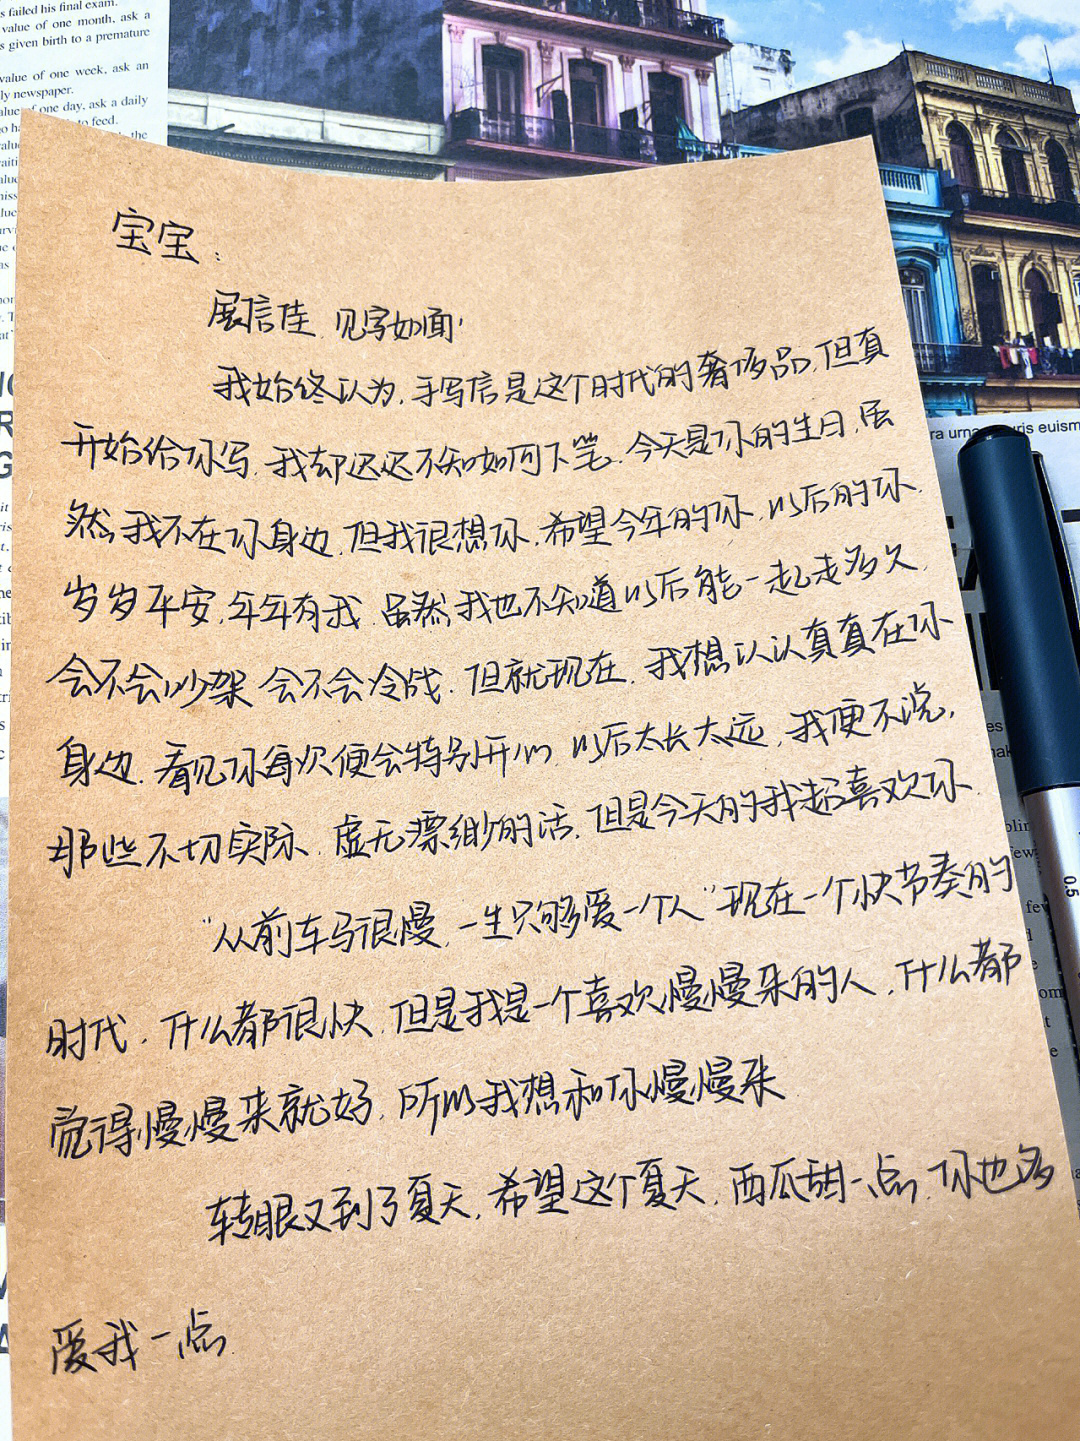 s failed his final exam.
value of one month, ask a
s given birth to a premature
value of one week, ask an
ly newspaper.
one day, ask a daily
to feed.
宝宝:
展信佳 见字如面,
我始终认为,手写信是这个时代的奢侈品,但真
开始给你写,我却迟迟不知如何下笔.今天是你的生日,虽
然我不在你身边,但我很想你.希望今年的你,以后的你.
岁岁平安,年年有我.虽然我也不知道以后能一起走多久,
会不会吵架 会不会冷战.但就现在,我想认认真真在你
身边.看见你每次便会特别开心,以后太长太远,我便不说,
那些不切实际.虚无漂缈的话,但是今天的我超喜欢你.
“从前车马很慢,一生只够爱一个人”现在一个快节奏的
时代.什么都很快,但是我是一个喜欢慢慢来的人,什么都
觉得慢慢来就好,所以我想和你慢慢来
转眼又到了夏天,希望这个夏天,西瓜甜一点,你也多
爱我一点.
ra urna
uris euism
0.5